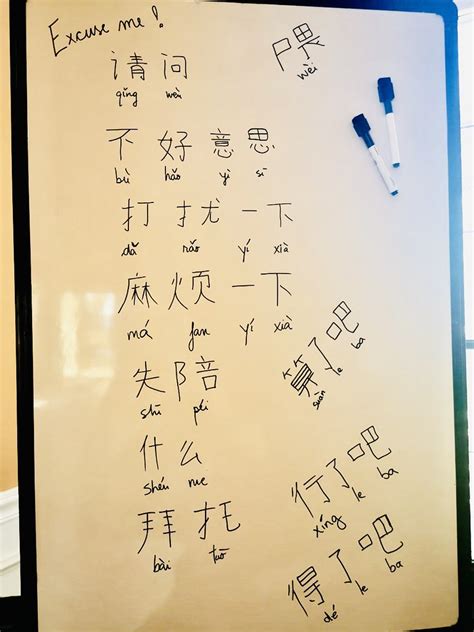 Excuse me!
请问
qǐng wèn
喂
wèi
不好意思
bù hǎo yì sī
打扰一下
dǎ rǎo yí xià
麻烦一下
má fan yí xià
失陪
shī péi
什么
shén me
拜托
bài tuō
算了吧
suàn le ba
行了吧
xíng le ba
得了吧
dé le ba